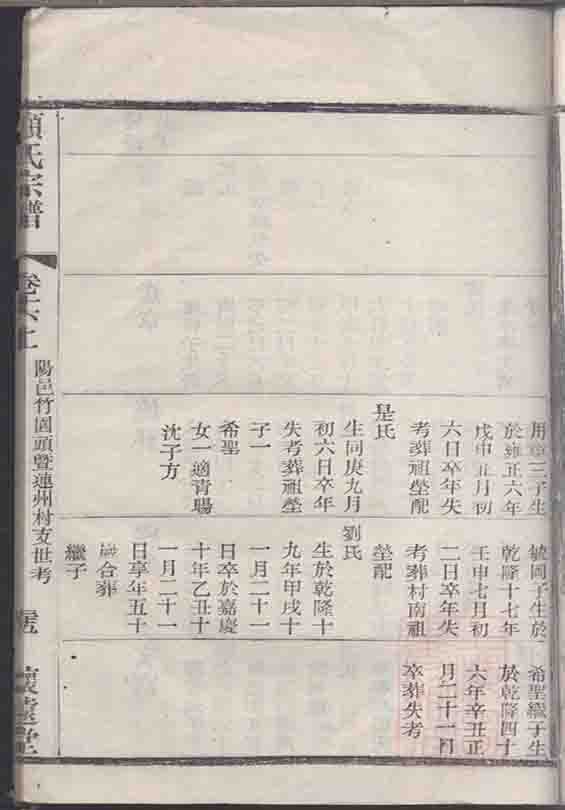 三子生
於雍正六年
戊申五月初
六日卒年失
考葬祖塋配
是氏
生同庚九月
初六日卒年
失考葬祖塋
子一
希聖
女一適青暘
沈子方
子生於
乾隆十七年
壬申七月初
二日卒年失
考葬村南祖
塋配
劉氏
生於乾隆十
九年甲戌十
一月二十一
日卒於嘉慶
十年乙丑十
一月二十一
日享年五十
歲合葬
繼子
希聖繼子生
於乾隆四十
六年辛丑正
月二十一日
卒葬失考
氏宗譜
陽邑竹園頭暨蓮州村支世考
堂